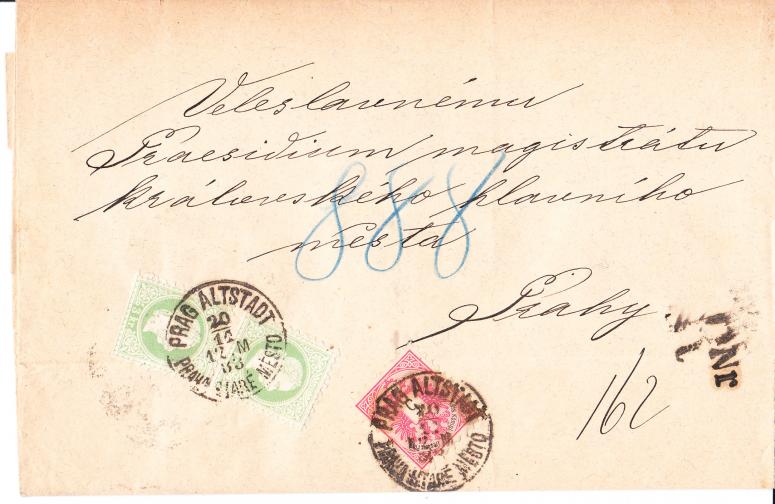 Veleslavnému
Praesidium magistrátu
královského hlavního
města
Prahy.
888
162
PRAG ALTSTADT
20
12 M
83
PRAHA STARÉ MĚSTO
PRAG ALTSTADT
PRAHA STARÉ MĚSTO